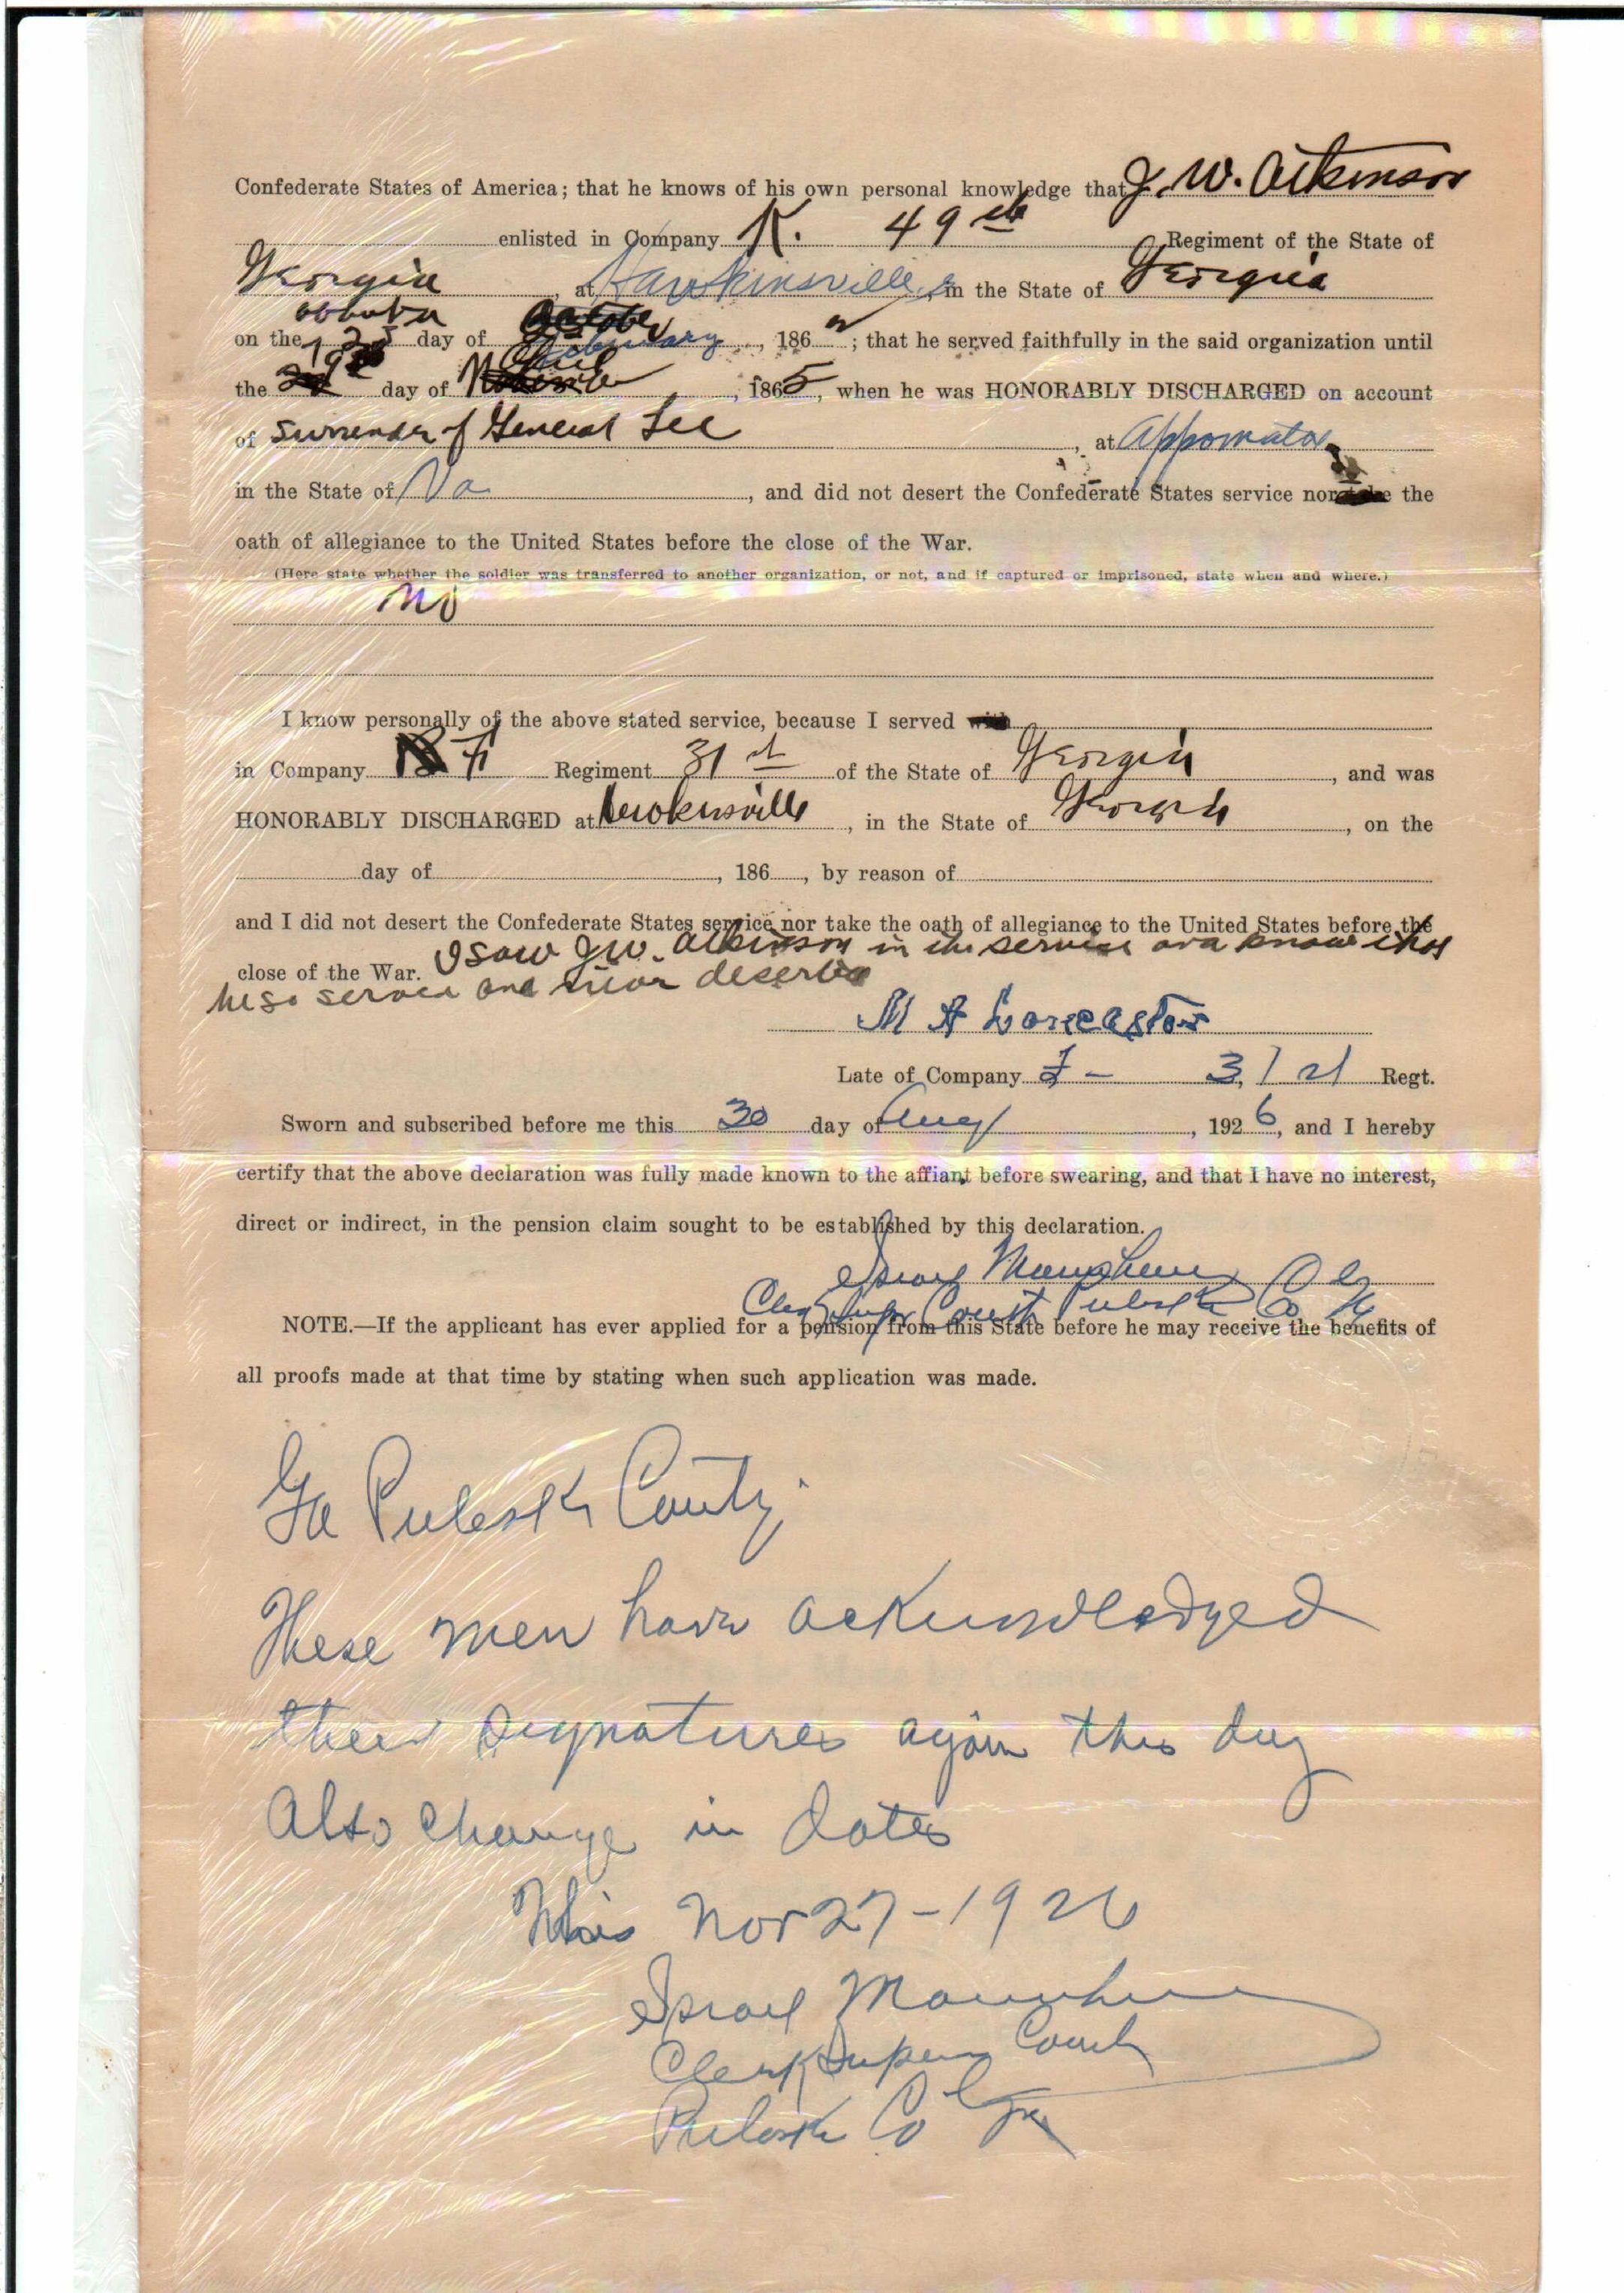 Confederate States of America; that he knows of his own personal knowledge that J. W. Atkinson
enlisted in Company K. 49th Regiment of the State of
Georgia, at Hawkinsville, in the State of Georgia
on the day of February, 186; that he served faithfully in the said organization until
the 9th day of, 1865, when he was HONORABLY DISCHARGED on account
of Surrender of General Lee, at Appomatox
in the State of Va, and did not desert the Confederate States service nor the
oath of allegiance to the United States before the close of the War.
(Here state whether the soldier was transferred to another organization, or not, and if captured or imprisoned, state when and where.)
No
I know personally of the above stated service, because I served with
in Company F Regiment 31st of the State of Georgia, and was
HONORABLY DISCHARGED at Hawkinsville, in the State of Georgia, on the
day of, 186, by reason of
and I did not desert the Confederate States service nor take the oath of allegiance to the United States before the
close of the War. I saw J W. Atkinson in the service and know that
he so served and never deserted
M A Lancaster
Late of Company F - 31st Regt.
Sworn and subscribed before me this 30 day of Aug, 1926, and I hereby
certify that the above declaration was fully made known to the affiant before swearing, and that I have no interest,
direct or indirect, in the pension claim sought to be established by this declaration.
Israel Mannheim
Clerk Super Court Pulaski Co Ga
NOTE.—If the applicant has ever applied for a pension from this State before he may receive the benefits of
all proofs made at that time by stating when such application was made.
Ga Pulaski County
These men have acknowledged
their signatures again this day
Also change in dates
This Nov 27-1926
Israel Mannheim
Clerk Super Court
Pulaski Co Ga